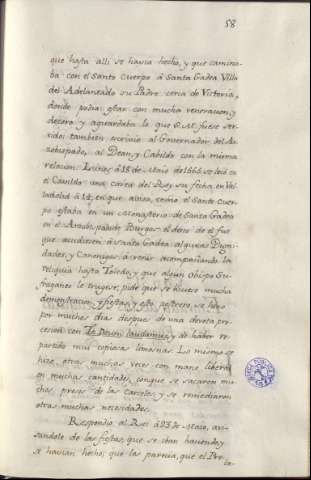 58
que hasta alli se havia hecho, y que camina-
ba con el Santo Cuerpo á Santa Gadea Villa
del Adelantado su Padre cerca de Victoria,
donde podia estar con mucha veneracion, y
decoro y aguardaba lo que S. M. fuese ser-
vido: tambien escrivió al Governador del Ar-
zobispado, al Dean, y Cabildo con la misma
relacion. Lunes á 18 de Maio de 1565 se leió en
el Cavildo una carta del Rey su fecha en Va-
lladolid á 14, en que avisa, como el Santo Cuer-
po estaba en un Monasterio de Santa Gadea
en el Arzobispado de Burgos: el deseo de el fue
que acudiesen á Santa Gadea algunas Digni-
dades, y Canonigos á venir acompañando la
reliquia hasta Toledo, y que algun Obispo Su-
fraganeo le trugese, pide que se hiciese mucha
demostracion, y fiestas, y esto postrero, se hizo
por muchos dias despues de una devota pro-
cesion con Te Deum laudamus, y de haber re-
partido mui copiosas limosnas. Lo mismo se
hizo otras muchas veces con mano liberal
en muchas cantidades, conque se sacaron mu-
chos presos de las carceles, y se remediaron
otras muchas necesidades.
Respondio al Rei á 23 de Maio, avi-
sandole de las fiestas, que se iban haciendo, y
se havian hecho; que les parecia, que el Pro-